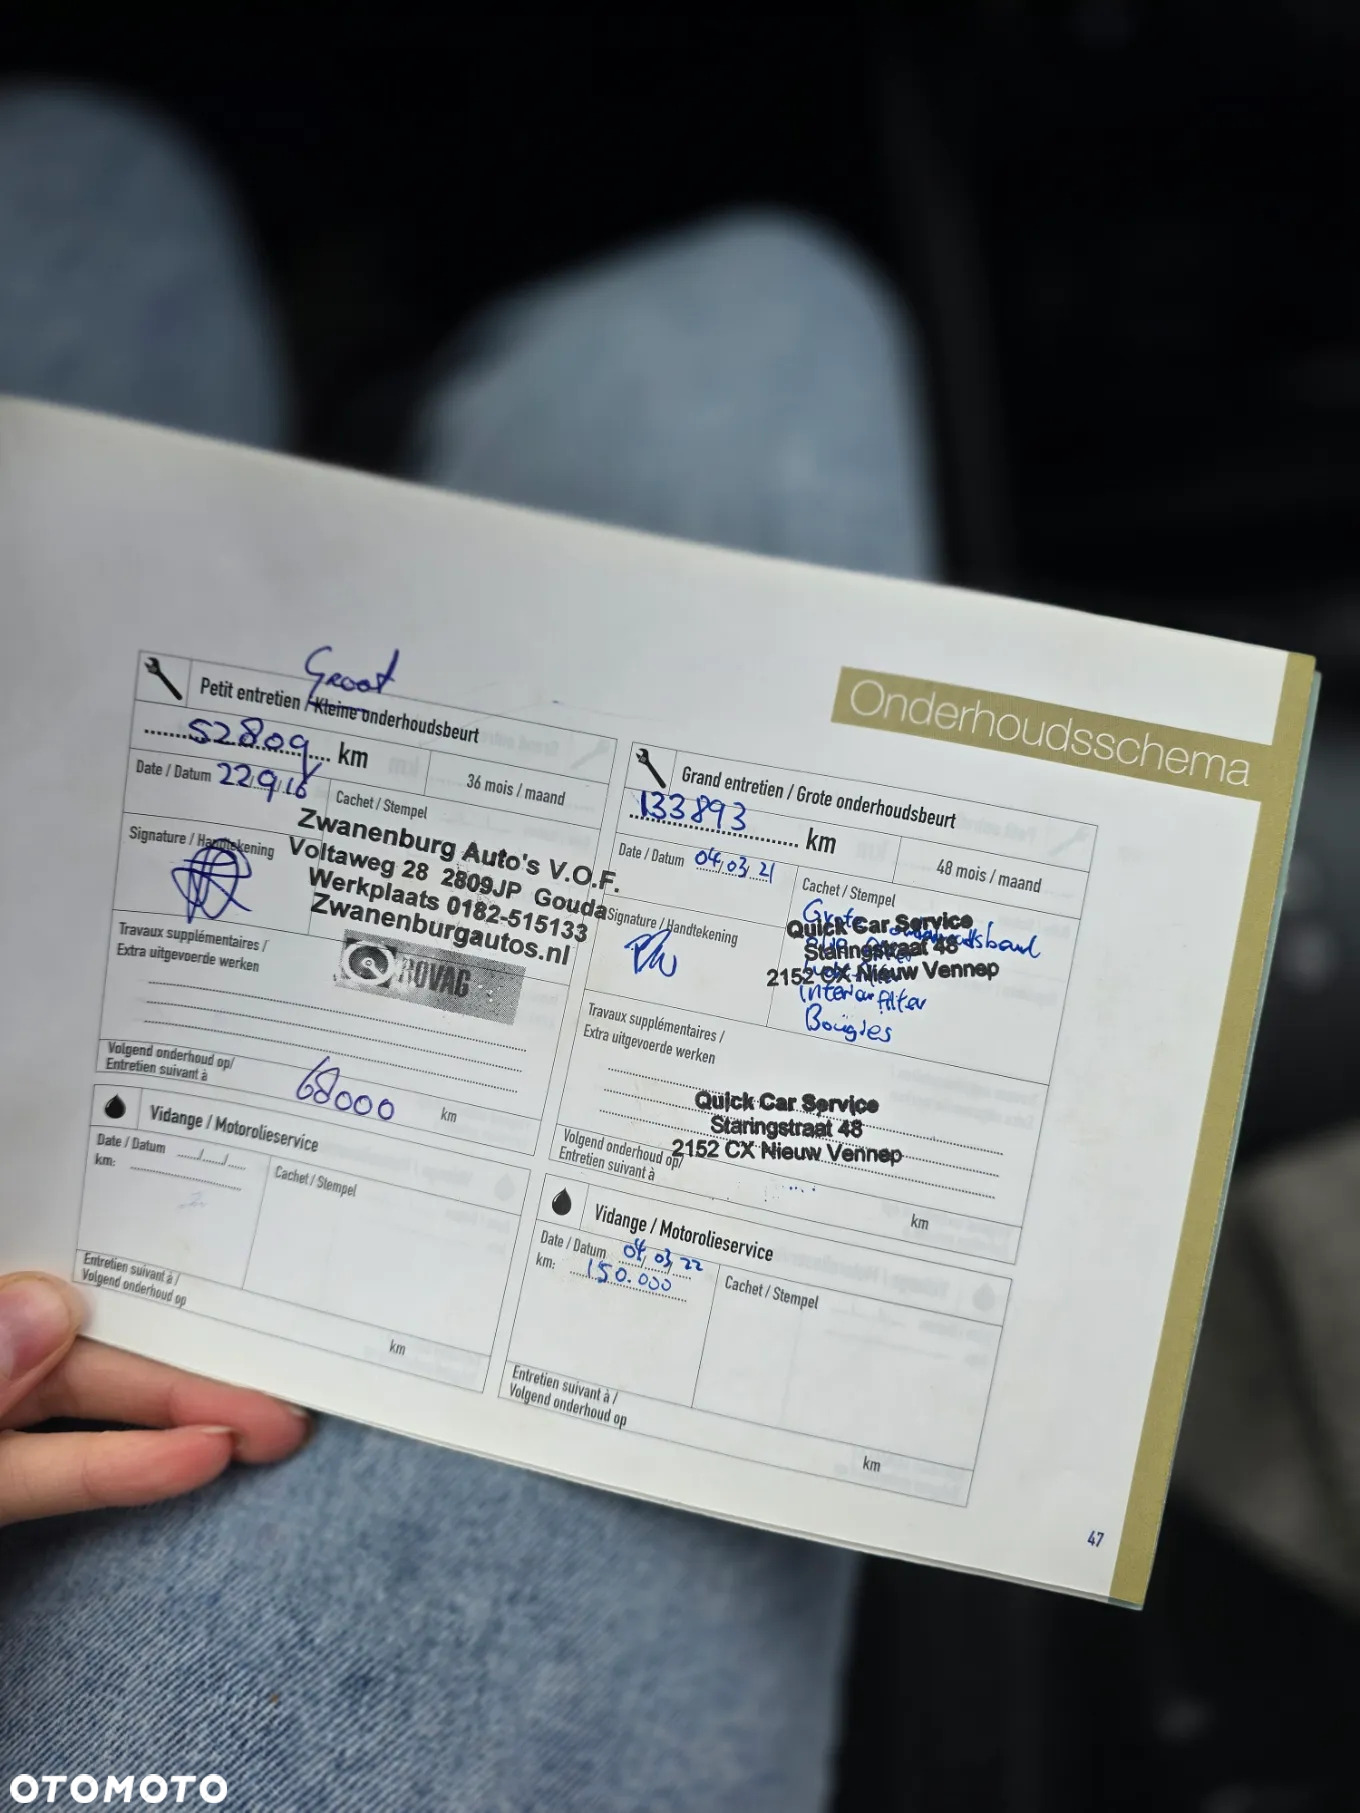 Onderhoudsschema
Groot
Petit entretien / Kleine onderhoudsbeurt
52809 km
36 mois / maand
Date / Datum 22/9/16
Cachet / Stempel
Zwanenburg Auto's V.O.F.
Voltaweg 28 2809JP Gouda
Werkplaats 0182-515133
Zwanenburgautos.nl
BOVAG
Signature / Handtekening
Travaux supplémentaires /
Extra uitgevoerde werken
Volgend onderhoud op/
Entretien suivant à
68000 km
Vidange / Motorolieservice
Date / Datum ..../..../....
km:
Cachet / Stempel
Entretien suivant à /
Volgend onderhoud op
km
Grand entretien / Grote onderhoudsbeurt
133893 km
48 mois / maand
Date / Datum 04/03/21
Cachet / Stempel
Grote onderhoudsbeurt
Quick Car Service
Staringstraat 48
2152 CX Nieuw Vennep
Interieurfilter
Bougies
Signature / Handtekening
Travaux supplémentaires /
Extra uitgevoerde werken
Quick Car Service
Staringstraat 48
2152 CX Nieuw Vennep
Volgend onderhoud op/
Entretien suivant à
km
Vidange / Motorolieservice
Date / Datum 04/03/22
km: 150.000
Cachet / Stempel
Entretien suivant à /
Volgend onderhoud op
km
47
OTOMOTO